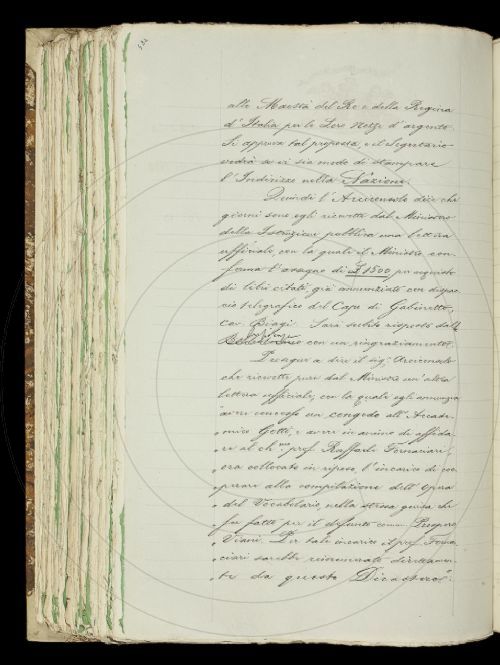 532
alle Maestà del Re e della Regina
d'Italia per le Loro Nozze d'argento.
Si approva tal proposta, e il Segretario
vedrà se vi sia modo di stampare
l'Indirizzo nella Nazione.
Quindi l'Arciconsolo dice che
giorni sono egli ricevette dal Ministero
della Istruzione pubblica una lettera
ufficiale, con la quale il Ministro con-
ferma l'assegno di £ 1500 per acquisto
di libri citati già annunziato con dispac-
cio telegrafico del Capo di Gabinetto,
Cav. Biagi. Sarà subito risposto dalla
con un ringraziamento.
Prosegue a dire il sig. Arciconsolo
che ricevette pure dal Ministro un'altra
lettera ufficiale, con la quale egli annunzia
" aver concesso un congedo all'Accade-
" mico Gotti, e avere in animo di affida-
" re al ch.mo prof. Raffaello Fornaciari,
" ora collocato in riposo, l'incarico di coo-
" perare alla compilazione dell'Opera
" del Vocabolario, nella stessa guisa che
" fu fatto per il defunto comm. Prospero
" Viani. Per tale incarico il prof. Forna-
" ciari sarebbe rimunerato direttamen-
" te da questo Dicastero".